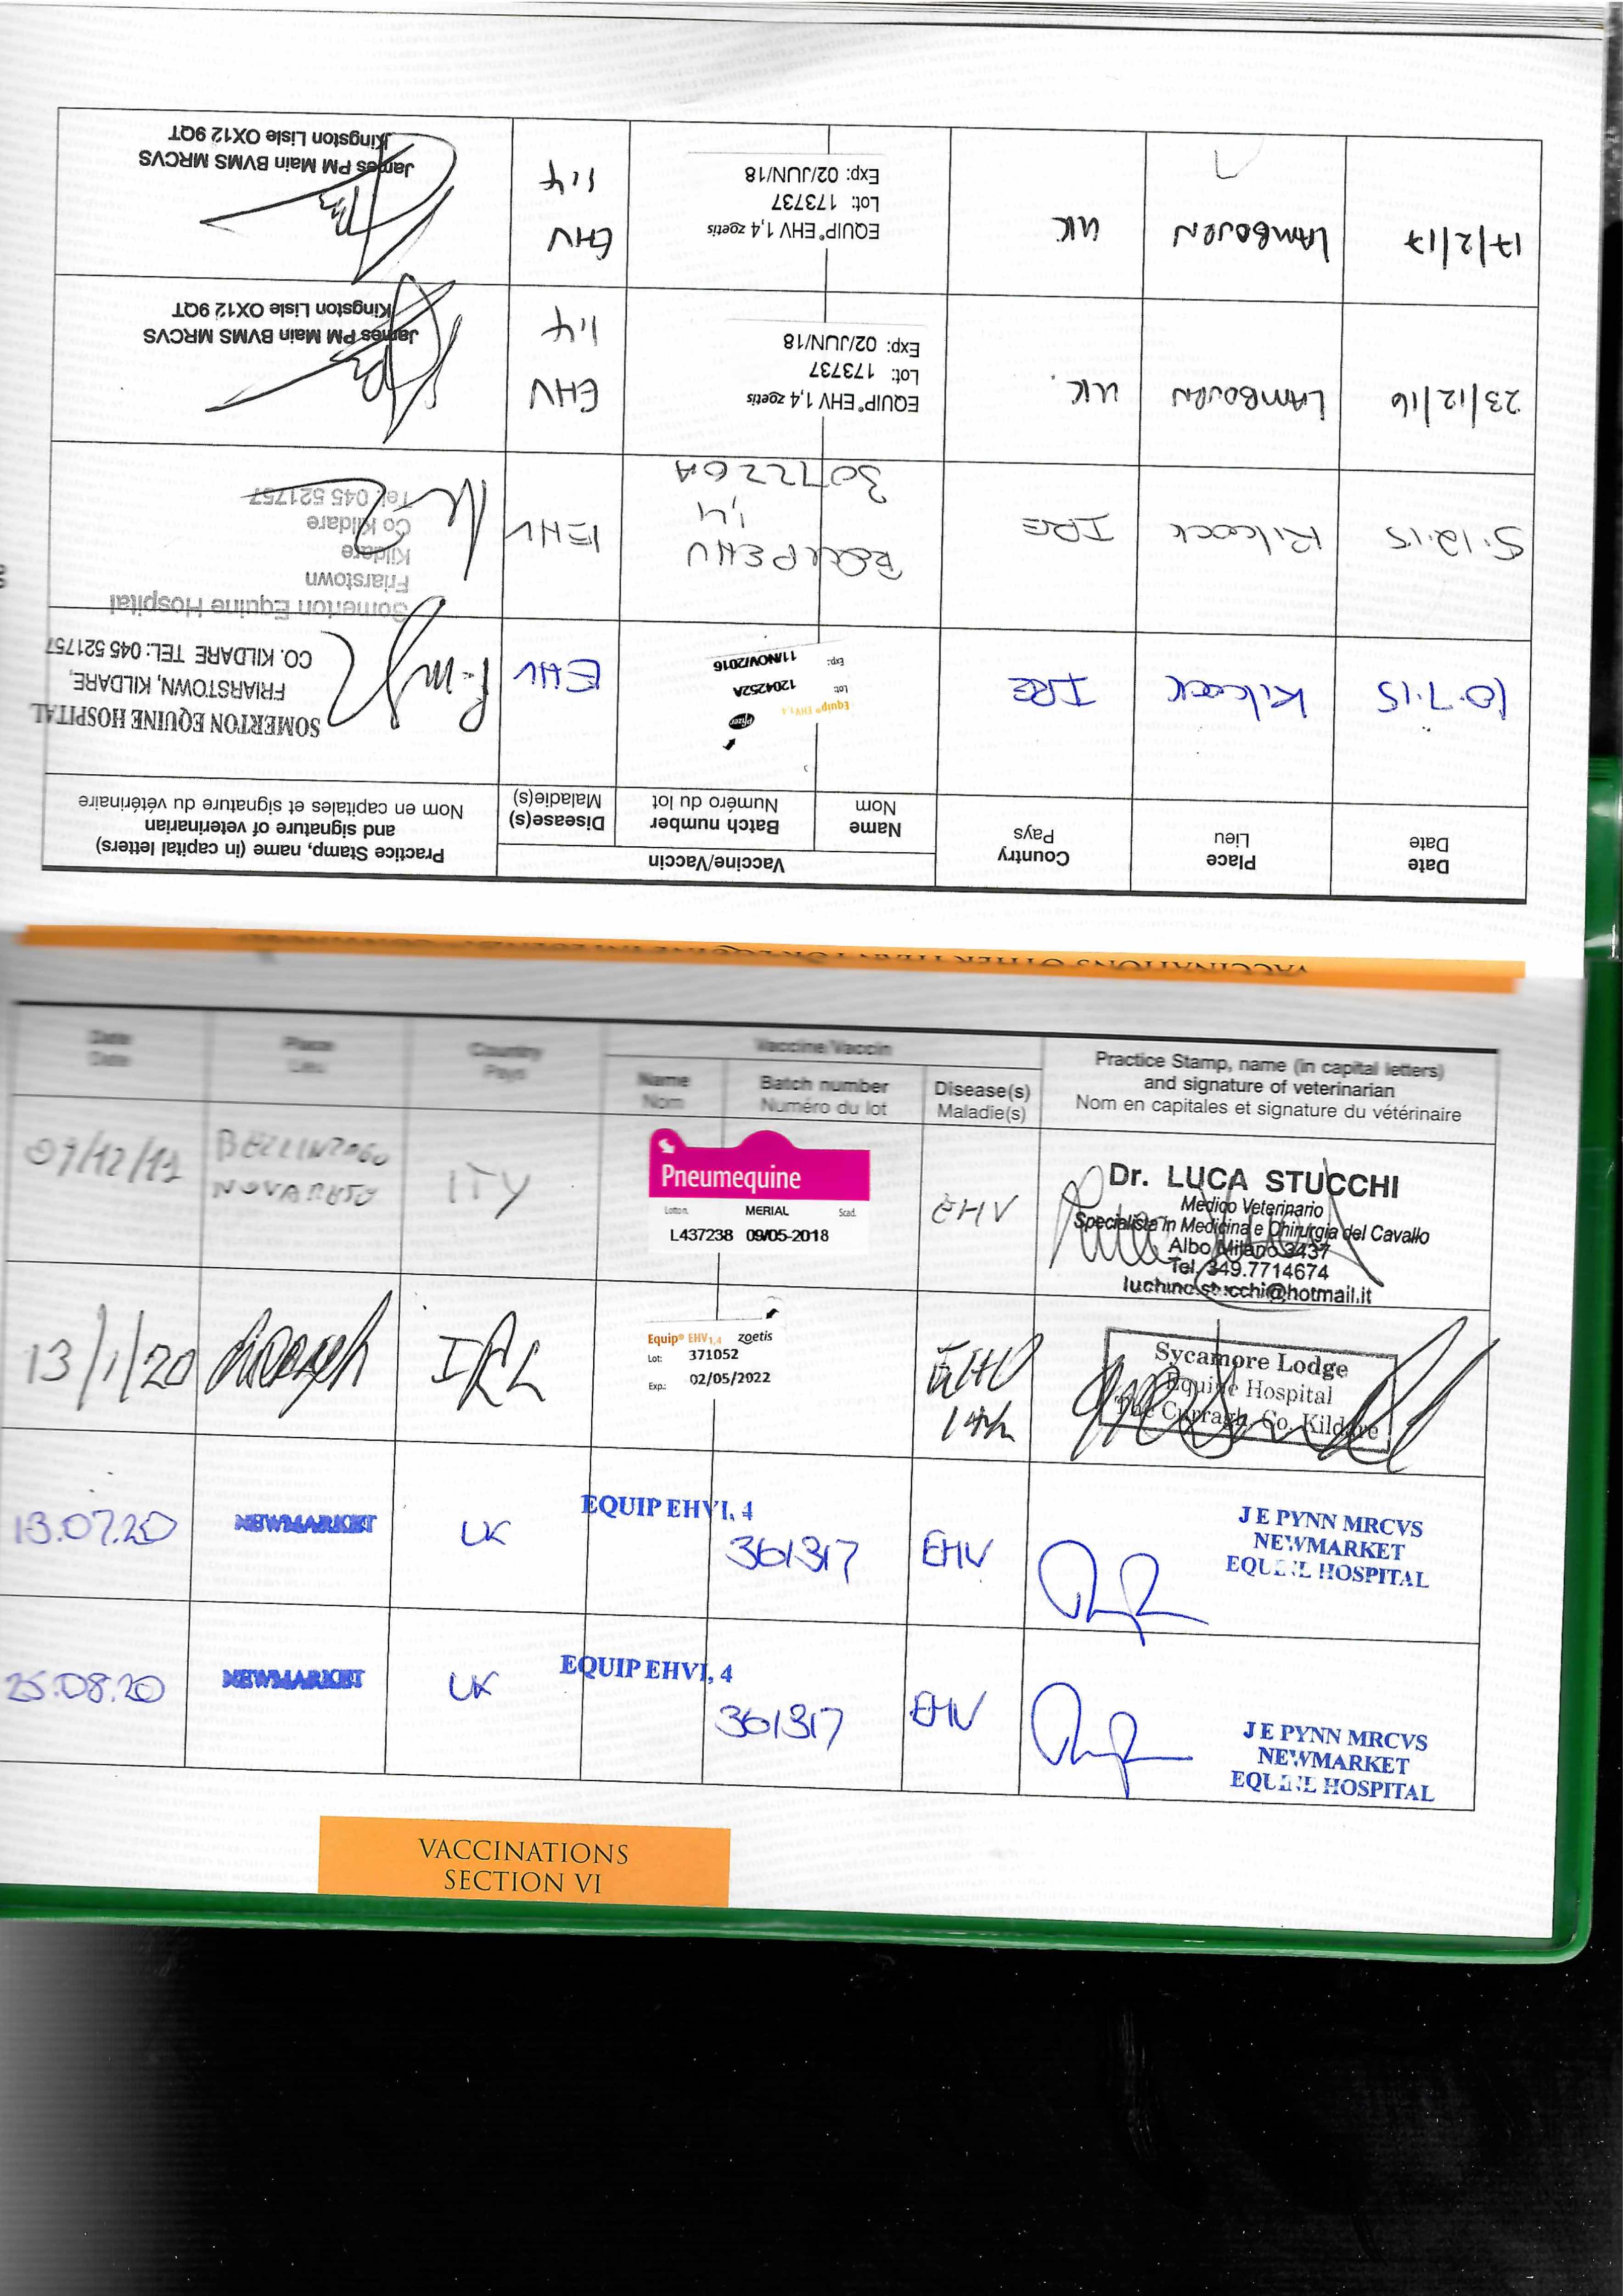 VACCINATIONS OTHER THAN
Date
Date
Place
Lieu
Country
Pays
Vaccine/Vaccin
Name
Nom
Batch number
Numéro du lot
Disease(s)
Maladie(s)
Practice Stamp, name (in capital letters)
and signature of veterinarian
Nom en capitales et signature du vétérinaire
10.7.15
Kilcock
IRE
Pfizer
Equip® EHV 1,4
Lot: 1204252A
Exp: 11/NOV/2016
EHV
SOMERTON EQUINE HOSPITAL
FRIARSTOWN, KILDARE,
CO. KILDARE TEL: 045 521757
5.12.15
Kilcock
IRE
1,4
307226A
EHV
Somerton Equine Hospital
Friarstown
Kildare
Co Kildare
Tel: 045 521757
23/12/16
LAMBOURN
UK
EQUIP® EHV 1,4 zoetis
Lot: 173737
Exp: 02/JUN/18
EHV
1.4
James PM Main BVMS MRCVS
Kingston Lisle OX12 9QT
17/2/17
LAMBOURN
UK
EQUIP® EHV 1,4 zoetis
Lot: 173737
Exp: 02/JUN/18
EHV
1.4
James PM Main BVMS MRCVS
Kingston Lisle OX12 9QT
Date
Date
Place
Lieu
Country
Pays
Vaccine/Vaccin
Name
Nom
Batch number
Numéro du lot
Disease(s)
Maladie(s)
Practice Stamp, name (in capital letters)
and signature of veterinarian
Nom en capitales et signature du vétérinaire
BELLINZAGO
ITY
Pneumequine
Lotto n. MERIAL Scad.
L437238 09/05-2018
EHV
Dr. LUCA STUCCHI
Medico Veterinario
Specialista in Medicina e Chirurgia del Cavallo
Albo Milano 3437
Tel. 349.7714674
hotmail.it
13/1/20
IRL
Equip® EHV1,4 zoetis
Lot: 371052
Exp.: 02/05/2022
EHV
Sycamore Lodge
Equine Hospital
The Curragh, Co. Kildare
13.07.20
NEWMARKET
UK
EQUIP EHV1, 4
361317
EHV
J E PYNN MRCVS
NEWMARKET
EQUINE HOSPITAL
25.08.20
NEWMARKET
UK
EQUIP EHV1, 4
361317
EHV
J E PYNN MRCVS
NEWMARKET
EQUINE HOSPITAL
VACCINATIONS
SECTION VI